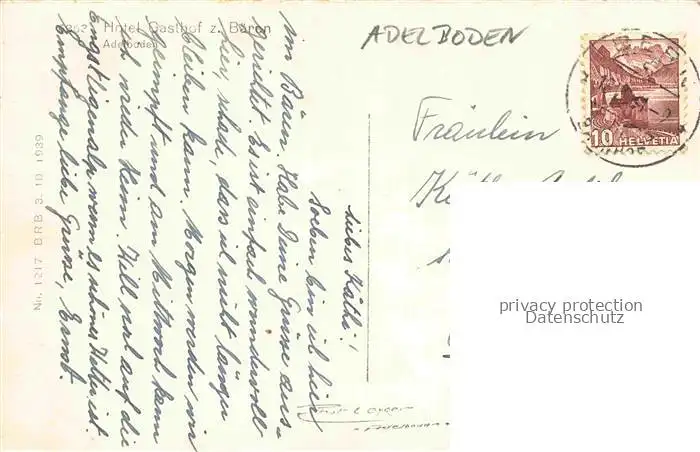 Hotel Gasthof z. Bären
Adelboden
ADELBODEN
No. 1217 BRB 3. 10. 1939
Liebes Käthi!
Soeben bin ich hier
im Bären. Habe Deine Grüsse aus-
gerichtet. Es ist einfach wundervoll
hier, schade, dass ich nicht länger
bleiben kann. Morgen werden wir
geimpft und am Mittwoch kann
ich wieder heim. Will mal auf die
Engstligenalp wenn es schönes Wetter ist.
Empfange liebe Grüsse, Ernst.
Fräulein
10 HELVETIA
privacy protection
Datenschutz
Adelboden